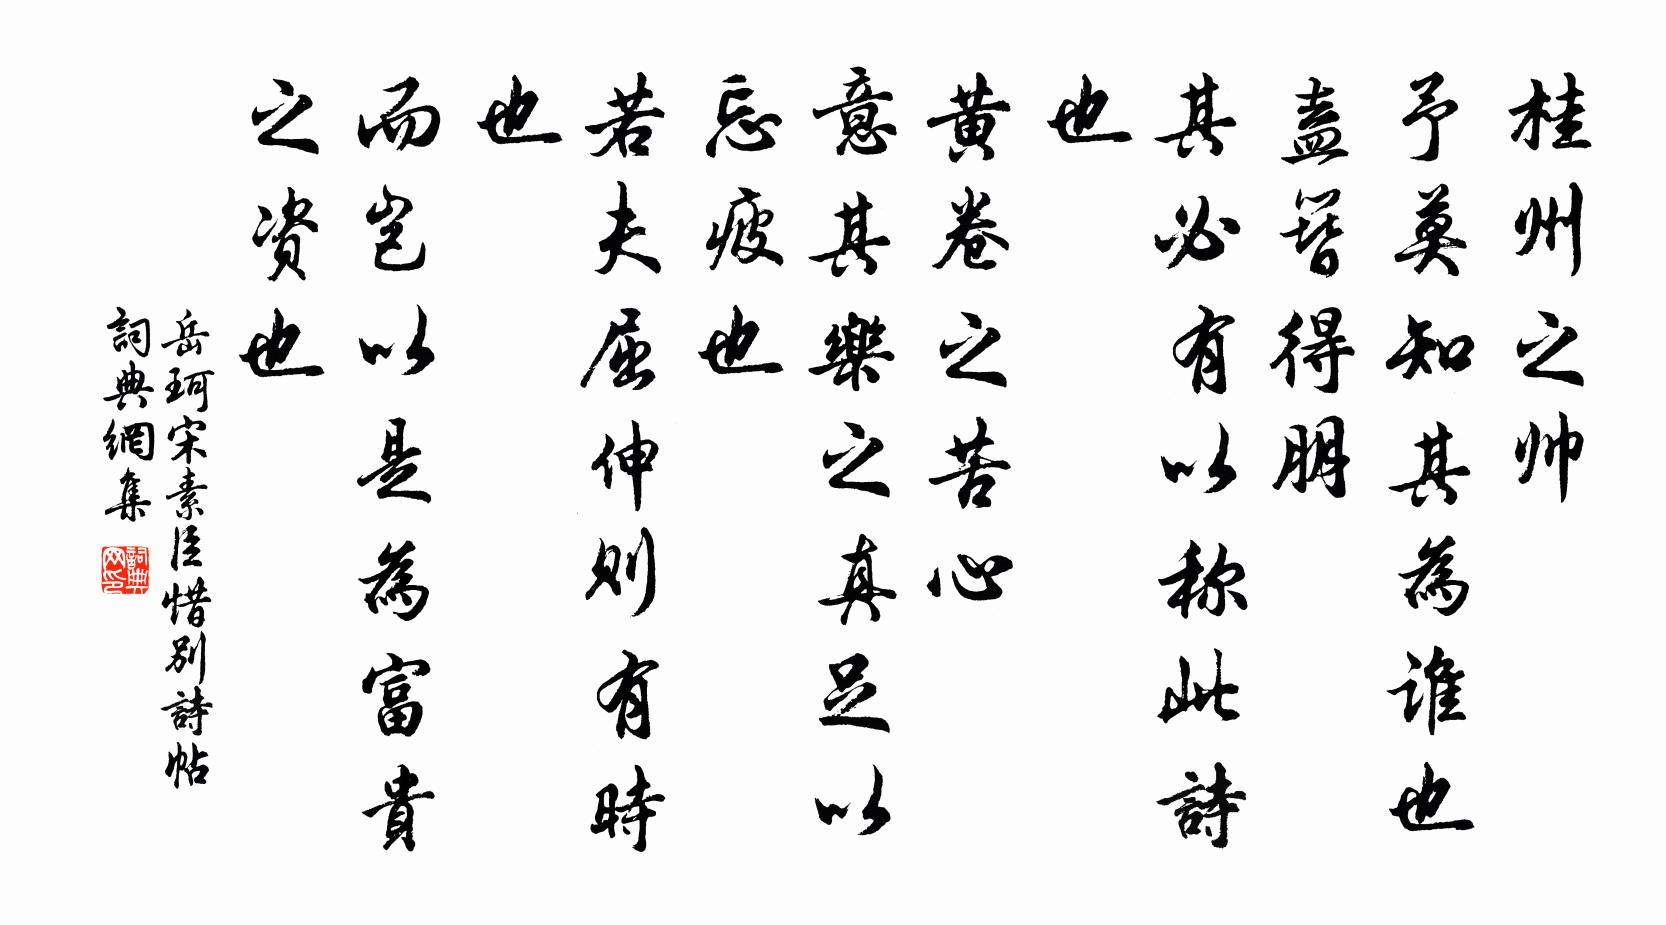 桂州之帅
予莫知其為谁也
盍簪得朋
其必有以称此詩
也
黄卷之苦心
意其樂之真足以
忘疲也
若夫屈伸则有時
也
而岂以是為富貴
之资也
岳珂宋素臣惜别詩帖
詞典網集
詞典网印